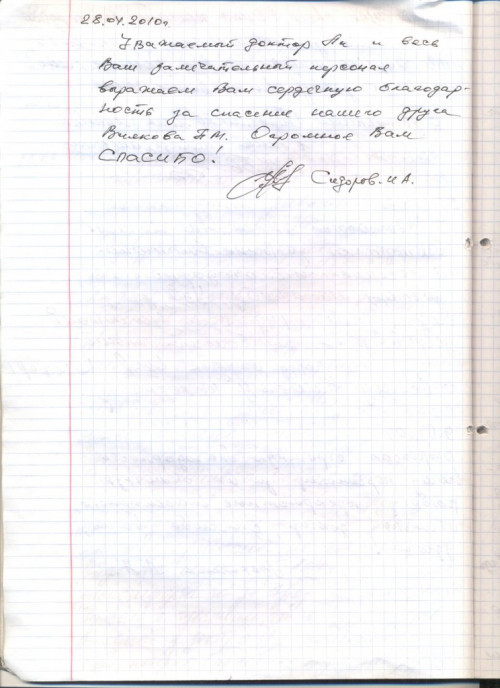 28.04.2010г
Уважаемый доктор Ли и весь
Ваш замечательный персонал
выражаем Вам сердечную благодар-
ность за спасение нашего друга
Вилкова П.М. Огромное Вам
СПАСИБО!
Сидоров. И А.